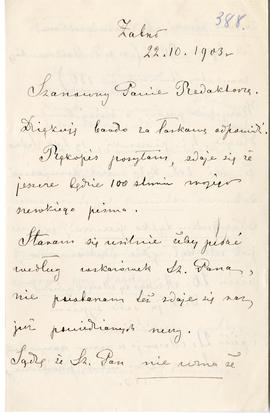 388.
Żalno
22.10.1903r
Szanowny Panie Redaktorze.
Dziękuję bardo za łaskawą odpowiedź.
Rękopis posyłam, zdaje się że
jeszcze będzie 100 stronic mojego
szewskiego pisma.
Staram się usilnie żeby pisać
według wskazówek Sz. Pana,
nie przestanam też zdaje się raz
już powiedzianych rzeczy.
Sądzę że Sz. Pan nie uzna że